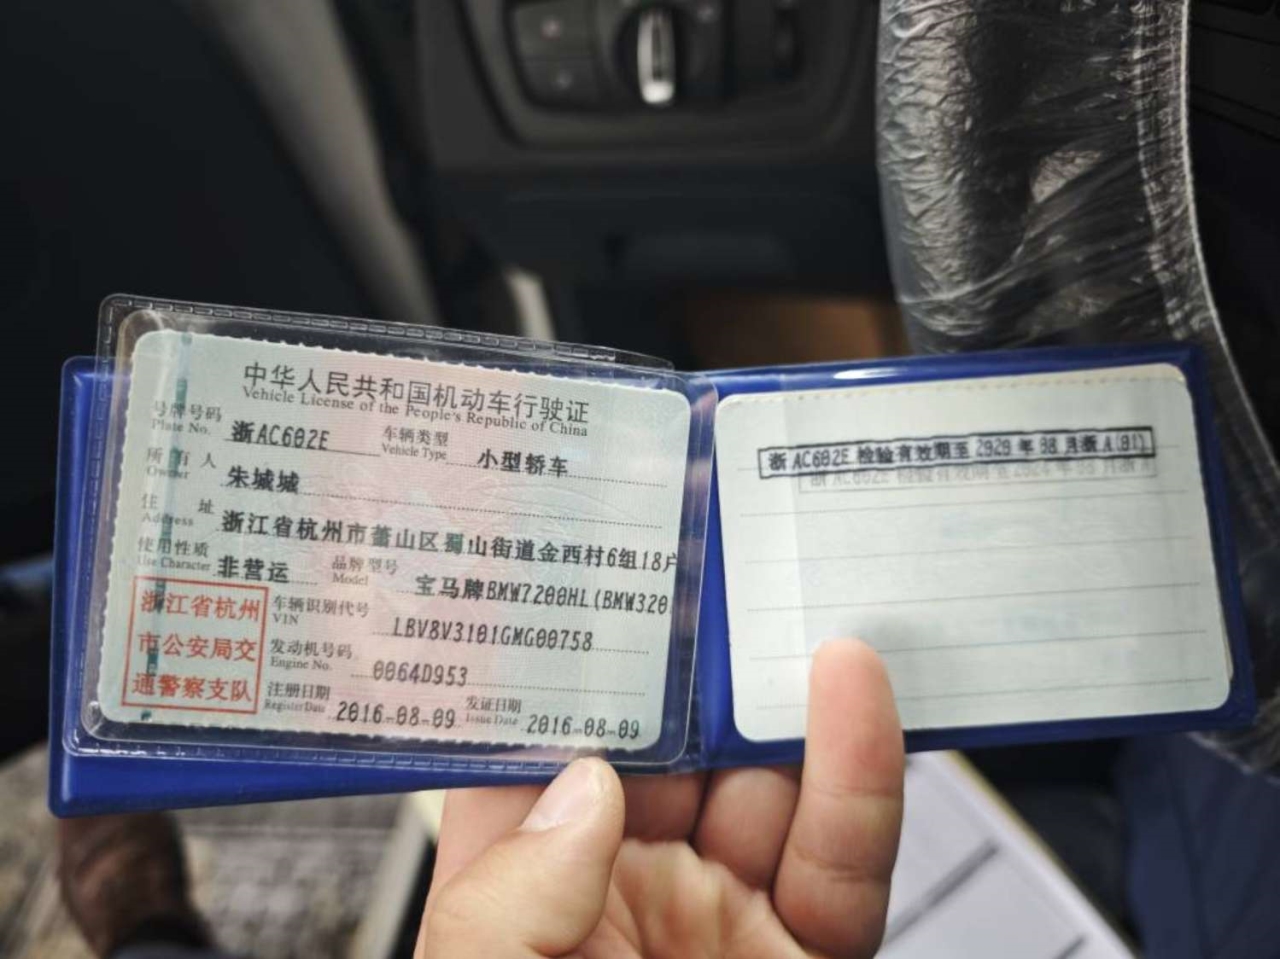 中华人民共和国机动车行驶证
Vehicle License of the People's Republic of China
号牌号码 浙AC602E 车辆类型 小型轿车
Plate No. Vehicle Type
所有人 朱城城
Owner
住址 浙江省杭州市萧山区蜀山街道金西村6组18户
Address
使用性质 非营运 品牌型号 宝马牌BMW7200HL(BMW320
Use Character Model
浙江省杭州
市公安局交
通警察支队
车辆识别代号 LBV8V3101GMG00758
VIN
发动机号码 0064D953
Engine No.
注册日期 2016-08-09 发证日期 2016-08-09
Register Date Issue Date
浙AC602E 检验有效期至 2020年08月浙A(01)
浙AC602E 检验有效期至2024年08月浙A